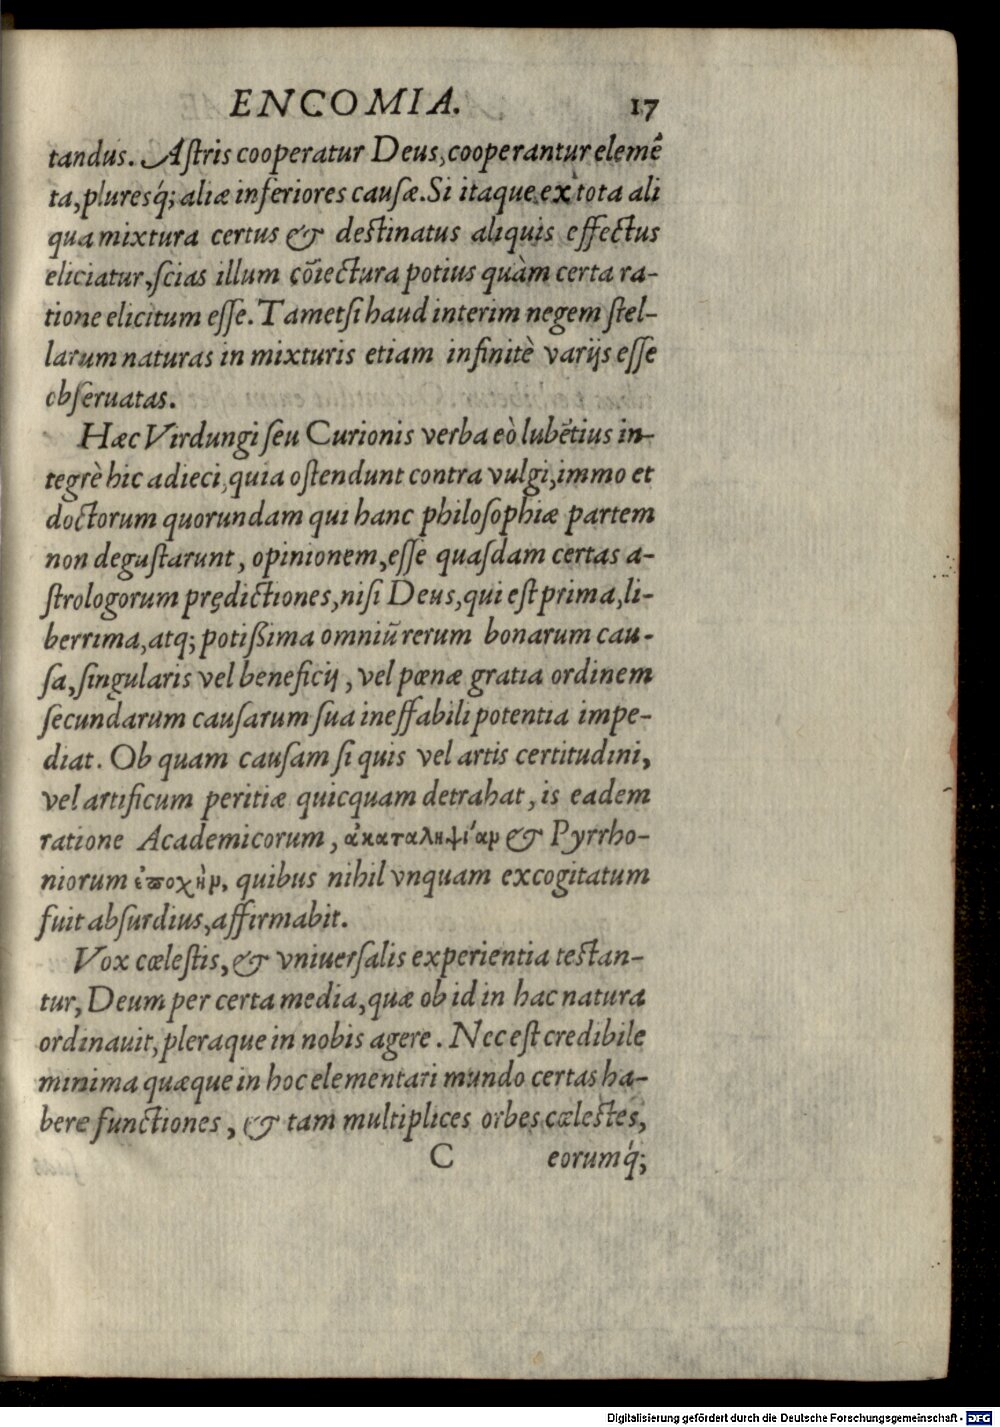 ENCOMIA. 17
tandus. Aſtris cooperatur Deus, cooperantur elemē
ta, pluresq́; aliæ inferiores cauſæ. Si itaque ex tota ali
qua mixtura certus & deſtinatus aliquis effectus
eliciatur, ſcias illum cōiectura potius quàm certa ra-
tione elicitum eſſe. Tametſi haud interim negem ſtel-
larum naturas in mixturis etiam infinitè varijs eſſe
obſeruatas.
Hæc Virdungi ſeu Curionis verba eò lubētius in-
tegrè hic adieci, quia oſtendunt contra vulgi, immo et
doctorum quorundam qui hanc philoſophiæ partem
non deguſtarunt, opinionem, eſſe quaſdam certas a-
ſtrologorum prędictiones, niſi Deus, qui eſt prima, li-
berrima, atq; potißima omniū rerum bonarum cau-
ſa, ſingularis vel beneficij, vel pœnæ gratia ordinem
ſecundarum cauſarum ſua ineffabili potentia impe-
diat. Ob quam cauſam ſi quis vel artis certitudini,
vel artificum peritiæ quicquam detrahat, is eadem
ratione Academicorum, ἀκαταληψίαν & Pyrrho-
niorum ἐποχὴν, quibus nihil vnquam excogitatum
fuit abſurdius, affirmabit.
Vox cœleſtis, & vniuerſalis experientia teſtan-
tur, Deum per certa media, quæ ob id in hac natura
ordinauit, pleraque in nobis agere. Nec eſt credibile
minima quæque in hoc elementari mundo certas ha-
bere functiones, & tam multiplices orbes cœleſtes,
C eorumq́;
Digitalisierung gefördert durch die Deutsche Forschungsgemeinschaft - DFG